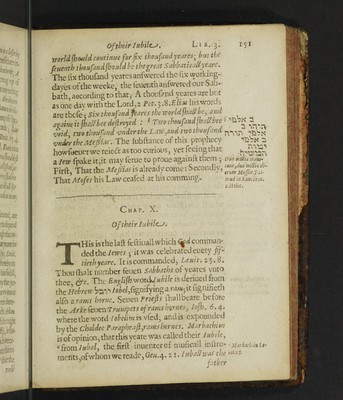 Of their Iubile. LIB. 3. 151
world should continue for six thousand yeares; but the
seuenth thousand should be the great Sabbaticall yeare.
The six thousand yeares answered the six working-
dayes of the weeke, the seuenth answered our Sab-
bath, according to that, A thousand yeares are but
as one day with the Lord, 2 Pet. 3.8. Elias his words
are these; Six thousand yeares the world shall be, and
againe it shall bee destroyed: Two thousand shall bee
void, two thousand vnder the Law, and two thousand
vnder the Messias. The substance of this prophecy
howsoeuer we reiect as too curious, yet seeing that
a Iew spake it, it may serue to proue against them;
First, That the Messias is already come: Secondly,
That Moses his Law ceased at his comming.
CHAP. X.
Of their Iubile.
THis is the last festiuall which God comman-
ded the Iewes; it was celebrated euery fif-
tieth yeare. It is commanded, Leuit. 25. 8.
Thou shalt number seuen Sabbaths of yeares vnto
thee, &c. The English word Iubile is deriued from
the Hebrew יובל Iobel, signifying a ram; it signifieth
also a rams horne. Seuen Priests shall beare before
the Arke seuen Trumpets of rams hornes, Iosh. 6. 4.
where the word Iobelim is vsed, and is expounded
by the Chaldee Paraphrast, rams hornes. Marbachius
is of opinion, that this yeare was called their Iubile,
from Iubal, the first inuenter of musicall instru-
ments, of whom we reade, Gen. 4. 21. Iubal was the
father